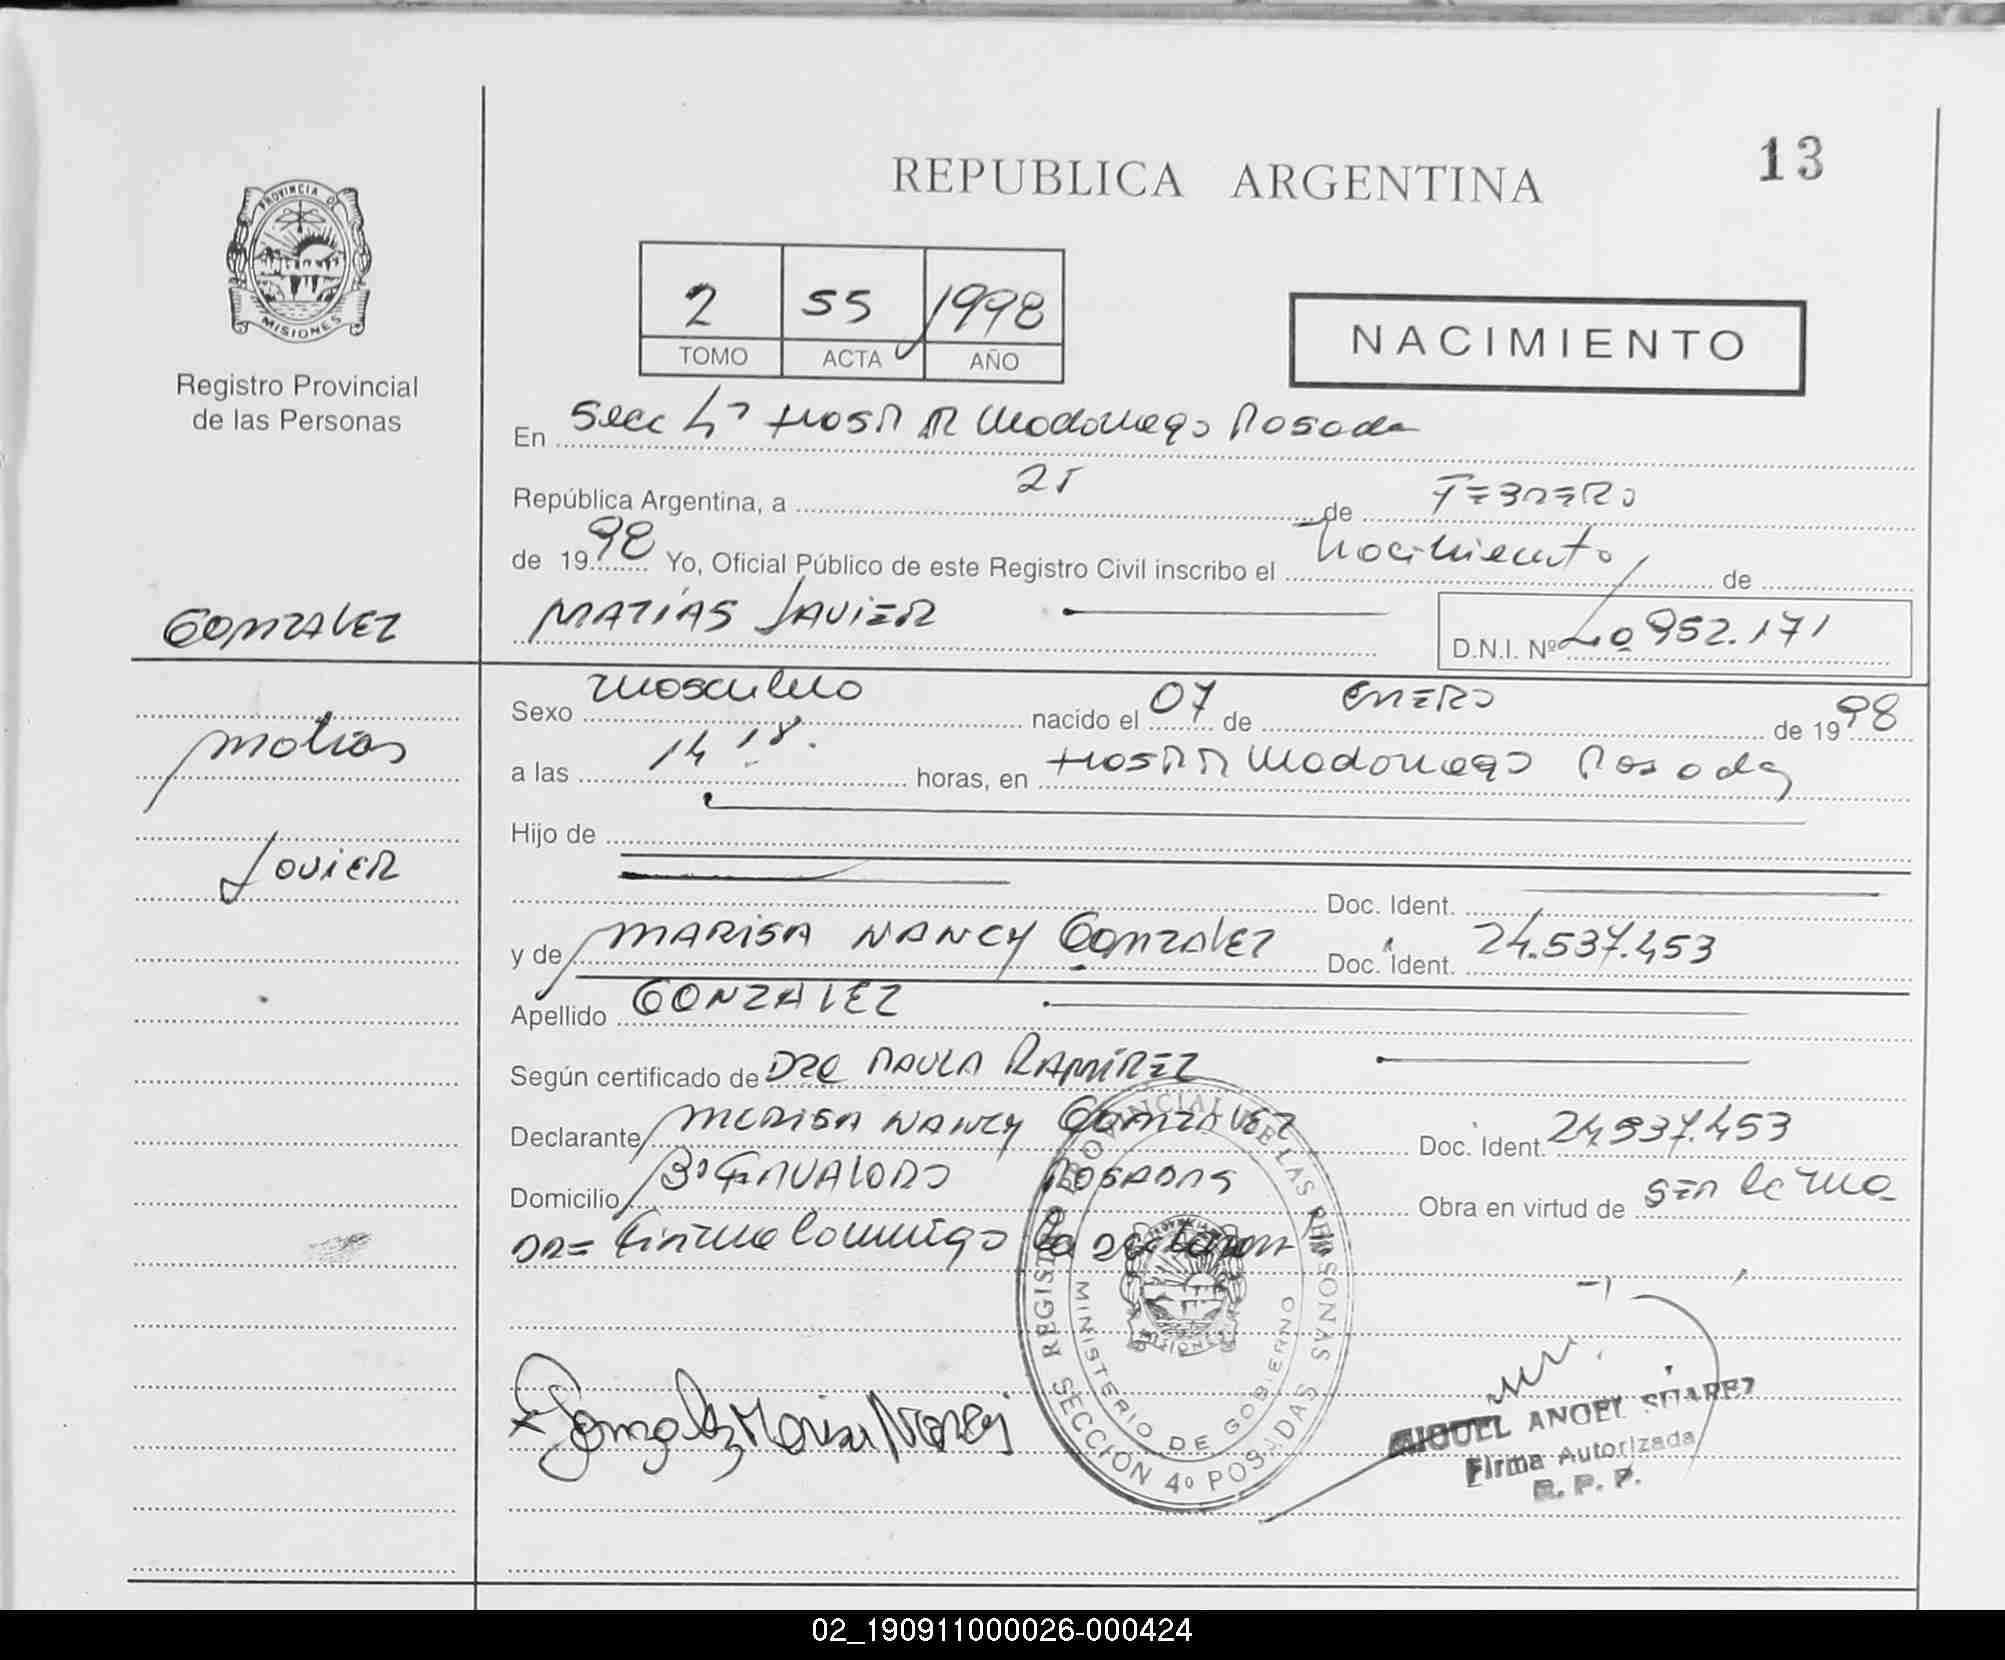 REPUBLICA ARGENTINA
13
PROVINCIA DE
MISIONES
Registro Provincial
de las Personas
2 55 1998
TOMO ACTA AÑO
NACIMIENTO
En Secc 4ª Hosp R Madariaga Posadas
República Argentina, a 25 de FEBRERO
de 1998 Yo, Oficial Público de este Registro Civil inscribo el Nacimiento de
GONZALEZ
MATÍAS JAVIER
D.N.I. Nº 40952.171
Matías
Javier
Sexo Masculino nacido el 07 de ENERO de 1998
a las 14 18. horas, en Hosp R Madariaga Posadas
Hijo de
Doc. Ident.
y de MARISA NANCY GONZALEZ Doc. Ident. 24.537.453
Apellido GONZALEZ
Según certificado de Dra PAULA RAMÍREZ
Declarante MARISA NANCY GONZALEZ Doc. Ident. 24.537.453
Domicilio Bº POSADAS Obra en virtud de SER la ma
DRE Firma Conmigo la declarante
REGISTRO PROVINCIAL DE LAS PERSONAS
MINISTERIO DE GOBIERNO
MISIONES
SECCIÓN 4º POSADAS
Gonzalez Marisa Nancy
MIGUEL ANGEL SUAREZ
Firma Autorizada
R. P. P.
02_190911000026-000424